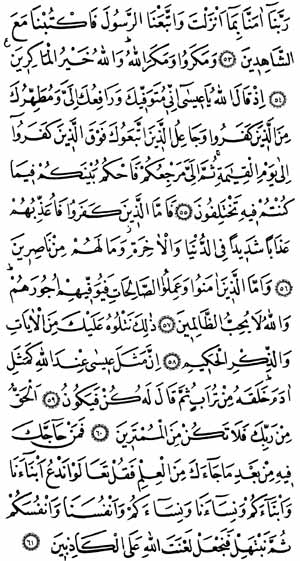 رَبَّنَٓا اٰمَنَّا بِمَٓا اَنْزَلْتَ وَاتَّبَعْنَا الرَّسُولَ فَاكْتُبْنَا مَعَ
الشَّاهِدٖينَ ﴿٥٣﴾ وَمَكَرُوا وَمَكَرَ اللّٰهُ وَاللّٰهُ خَيْرُ الْمَاكِرٖينَ
﴿٥٤﴾ اِذْ قَالَ اللّٰهُ يَا عٖيسٰٓى اِنّٖى مُتَوَفّٖيكَ وَرَافِعُكَ اِلَىَّ وَمُطَهِّرُكَ
مِنَ الَّذٖينَ كَفَرُوا وَجَاعِلُ الَّذٖينَ اتَّبَعُوكَ فَوْقَ الَّذٖينَ كَفَرُٓوا
اِلٰى يَوْمِ الْقِيٰمَةِ ثُمَّ اِلَىَّ مَرْجِعُكُمْ فَاَحْكُمُ بَيْنَكُمْ فٖيمَا
كُنْتُمْ فٖيهِ تَخْتَلِفُونَ ﴿٥٥﴾ فَاَمَّا الَّذٖينَ كَفَرُوا فَاُعَذِّبُهُمْ
عَذَابًا شَدٖيدًا فِى الدُّنْيَا وَالْاٰخِرَةِ وَمَا لَهُمْ مِنْ نَاصِرٖينَ
﴿٥٦﴾ وَاَمَّا الَّذٖينَ اٰمَنُوا وَعَمِلُوا الصَّالِحَاتِ فَيُوَفّٖيهِمْ اُجُورَهُمْ
وَاللّٰهُ لَا يُحِبُّ الظَّالِمٖينَ ﴿٥٧﴾ ذٰلِكَ نَتْلُوهُ عَلَيْكَ مِنَ الْاٰيَاتِ
وَالذِّكْرِ الْحَكٖيمِ ﴿٥٨﴾ اِنَّ مَثَلَ عٖيسٰى عِنْدَ اللّٰهِ كَمَثَلِ
اٰدَمَ خَلَقَهُ مِنْ تُرَابٍ ثُمَّ قَالَ لَهُ كُنْ فَيَكُونُ ﴿٥٩﴾ اَلْحَقُّ
مِنْ رَبِّكَ فَلَا تَكُنْ مِنَ الْمُمْتَرٖينَ ﴿٦٠﴾ فَمَنْ حَٓاجَّكَ
فٖيهِ مِنْ بَعْدِ مَا جَٓاءَكَ مِنَ الْعِلْمِ فَقُلْ تَعَالَوْا نَدْعُ اَبْنَٓاءَنَا
وَاَبْنَٓاءَكُمْ وَنِسَٓاءَنَا وَنِسَٓاءَكُمْ وَاَنْفُسَنَا وَاَنْفُسَكُمْ
ثُمَّ نَبْتَهِلْ فَنَجْعَلْ لَعْنَتَ اللّٰهِ عَلَى الْكَاذِبٖينَ ﴿٦١﴾